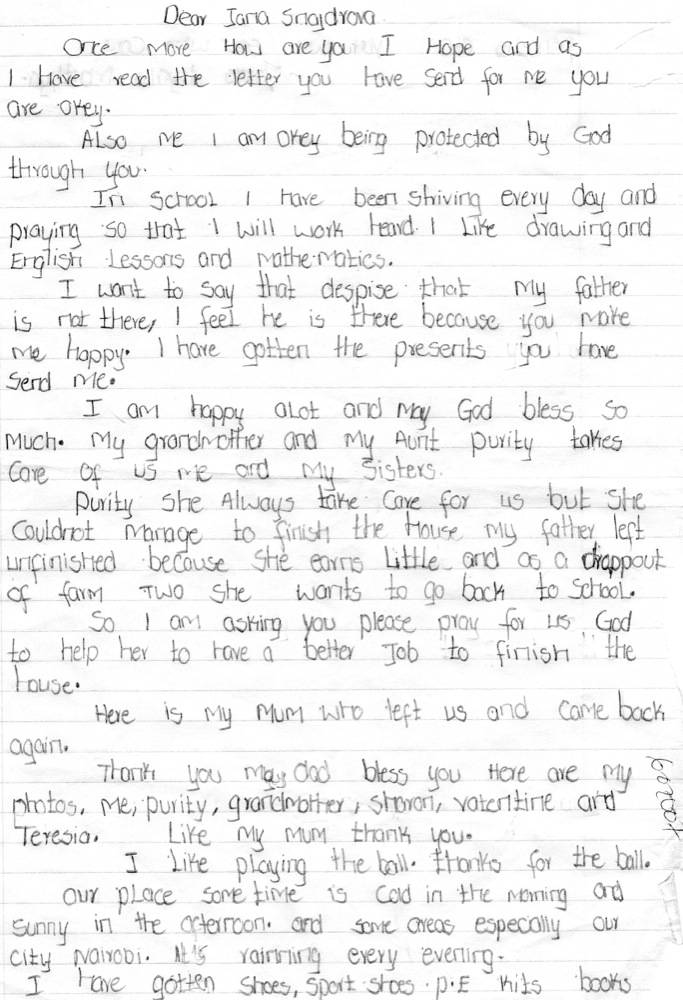 Dear Jana Snajdrova
Once More How are you I Hope and as
I Have read the letter you Have Send for Me you
are okey.
Also Me I am okey being protected by God
through you.
In School I have been Shiving every day and
praying so that I will work heard. I Like drawing and
English Lessons and Mathematics.
I want to say that despise that My father
is not there, I feel he is there because you make
me happy. I have gotten the presents you have
Send Me.
I am happy aLot and May God bless so
Much. My grandmother and My Aunt purity takes
Care of us me and My Sisters.
Purity She Always take Care for us but She
Couldnot Manage to finish the House my father left
unfinished because She earns Little and as a drappout
of farm Two She wants to go back to School.
So I am asking you please pray for us God
to help her to have a better Job to finish the
house.
Here is My Mum who left us and Came back
again.
Thank you may God bless you Here are My
photos. Me, purity, grandmother, Sharon, vatentine and
Teresia. Like My Mum thank you.
I Like playing the ball. thanks for the ball.
Our place some time is Cold in the Morning and
Sunny in the afternoon. and some areas especially our
City Nairobi. It's rainning every evening.
I have gotten Shoes, Sport shoes. P.E Kits books